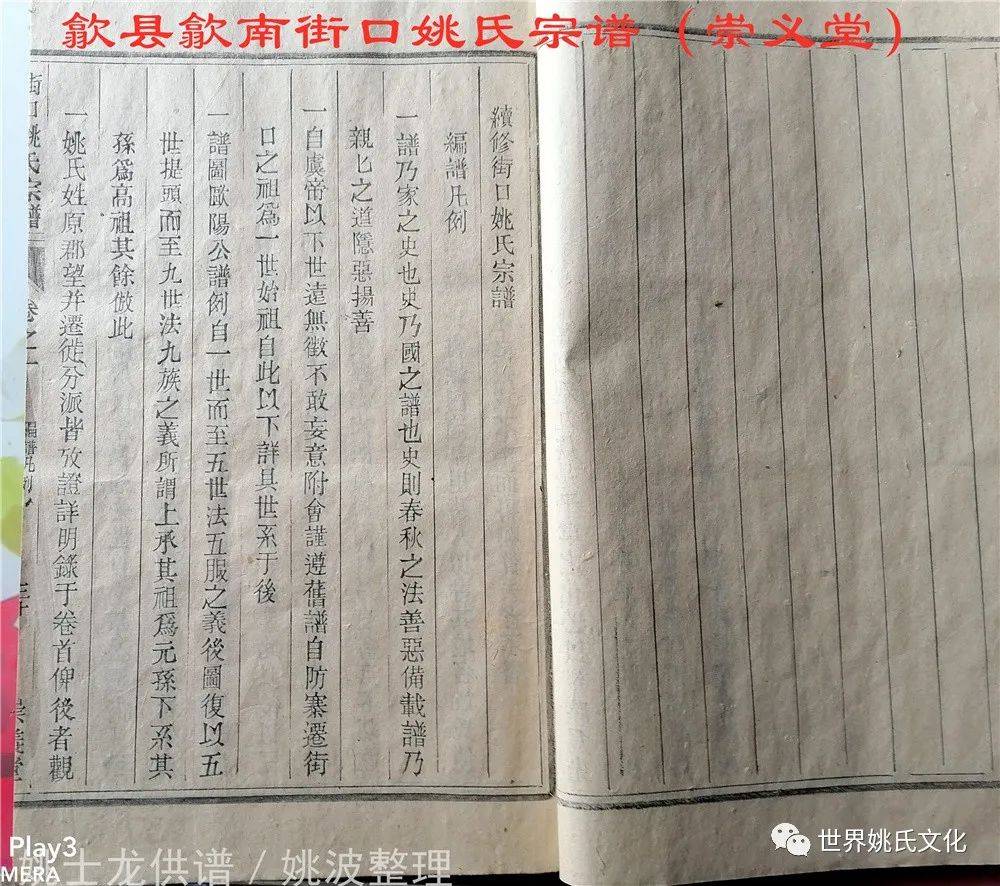 歙县歙南街口姚氏宗谱（崇义堂）
續修街口姚氏宗譜
編譜凡例
一譜乃家之史也史乃國之譜也史則春秋之法善惡備載譜乃
親匕之道隱惡揚善
一自虞帝以下世遠無徵不敢妄意附會謹遵舊譜自防寨遷街
口之祖爲一世始祖自此以下詳具世系于後
一譜圖歐陽公譜例自一世而至五世法五服之義後圖復以五
世提頭而至九世法九族之義所謂上承其祖爲元孫下系其
孫爲高祖其餘倣此
一姚氏姓原郡望并遷徙分派皆攷證詳明錄于卷首俾後者觀
街口姚氏宗譜
卷之
編譜凡例
崇義堂
Play3
MERA
姚士龙供谱 / 姚波整理
世界姚氏文化